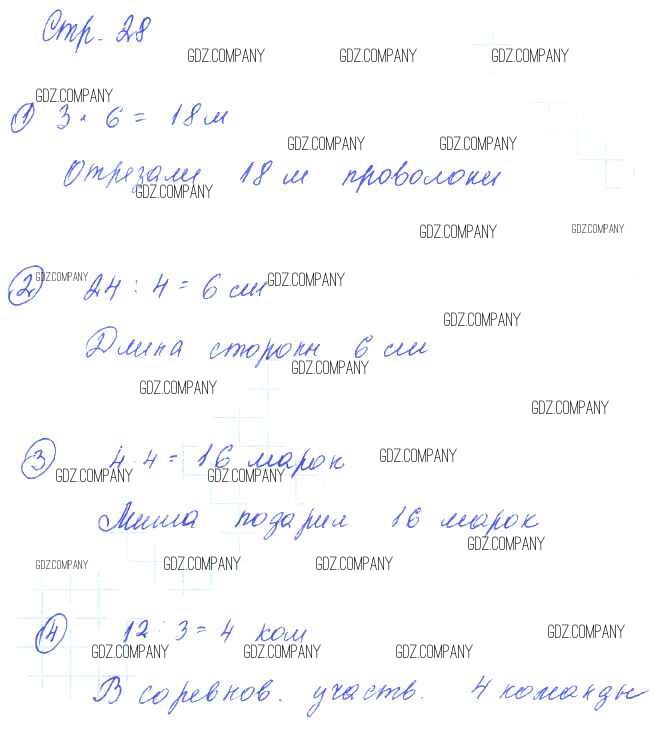 Стр. 28
GDZ.COMPANY GDZ.COMPANY GDZ.COMPANY
GDZ.COMPANY
1 3 · 6 = 18 м
GDZ.COMPANY GDZ.COMPANY
Отрезали 18 м проволоки
GDZ.COMPANY
GDZ.COMPANY GDZ.COMPANY
GDZ.COMPANY GDZ.COMPANY
2 24 : 4 = 6 см
GDZ.COMPANY
Длина стороны 6 см
GDZ.COMPANY
GDZ.COMPANY
GDZ.COMPANY
3 4 · 4 = 16 марок
GDZ.COMPANY
GDZ.COMPANY GDZ.COMPANY
Миша подарил 16 марок
GDZ.COMPANY
GDZ.COMPANY GDZ.COMPANY GDZ.COMPANY
4 12 : 3 = 4 ком
GDZ.COMPANY
GDZ.COMPANY GDZ.COMPANY GDZ.COMPANY
В соревнов. участв. 4 команды